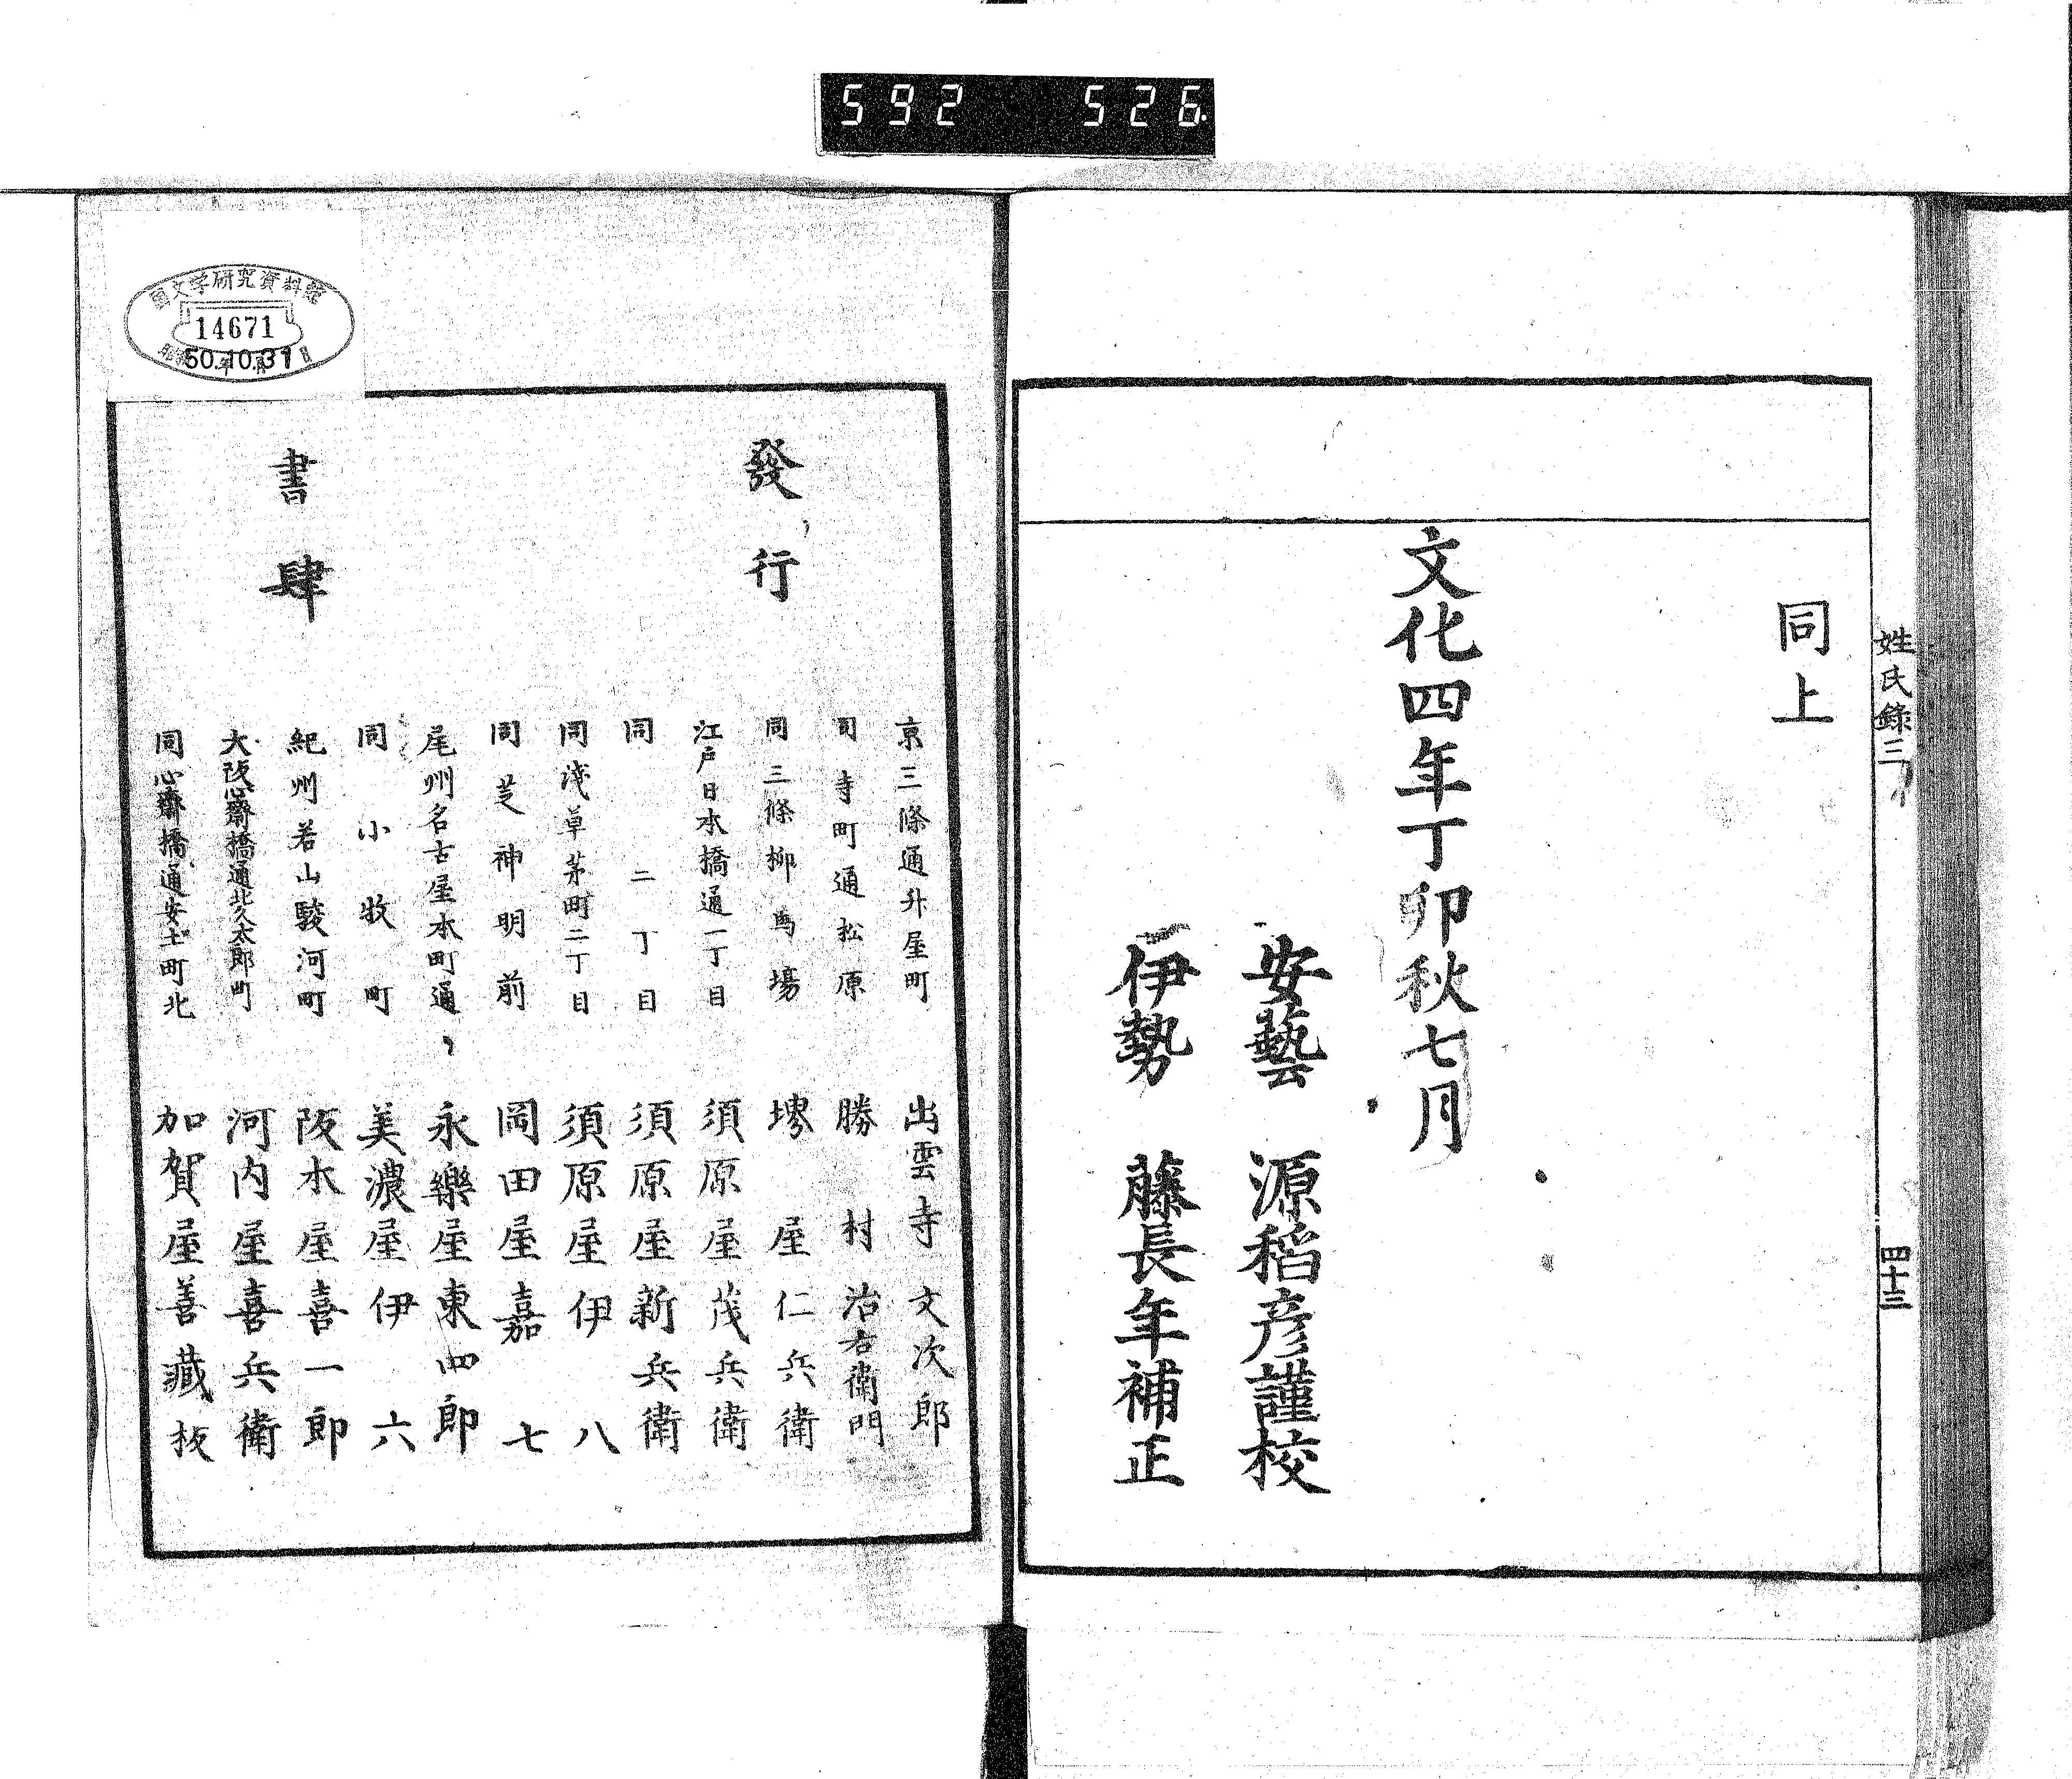 592 526
姓氏錄三
四十三
同上
文化四年丁卯秋七月
安藝 源稻彦謹校
伊勢 藤長年補正
國文学研究資料館
14671
50.10.31
發行
書肆
京三條通升屋町 出雲寺文次郎
同寺町通松原 勝村治右衛門
同三條柳馬場 堺屋仁兵衛
江戸日本橋通一丁目 須原屋茂兵衛
同二丁目 須原屋新兵衛
同淺草茅町二丁目 須原屋伊八
同芝神明前 岡田屋嘉七
尾州名古屋本町通 永樂屋東四郎
同小牧町 美濃屋伊六
紀州若山駿河町 阪本屋喜一郎
大阪心齋橋通北久太郎町 河内屋喜兵衛
同心齋橋通安土町北 加賀屋善藏板